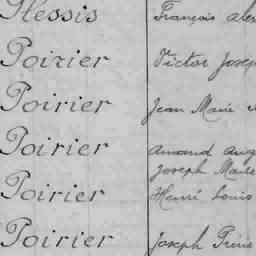 Plessis François Alex
Poirier Victor Josep
Poirier Jean Marie
Poirier Amand Aug
Joseph Marie
Poirier Henri Louis
Poirier Joseph